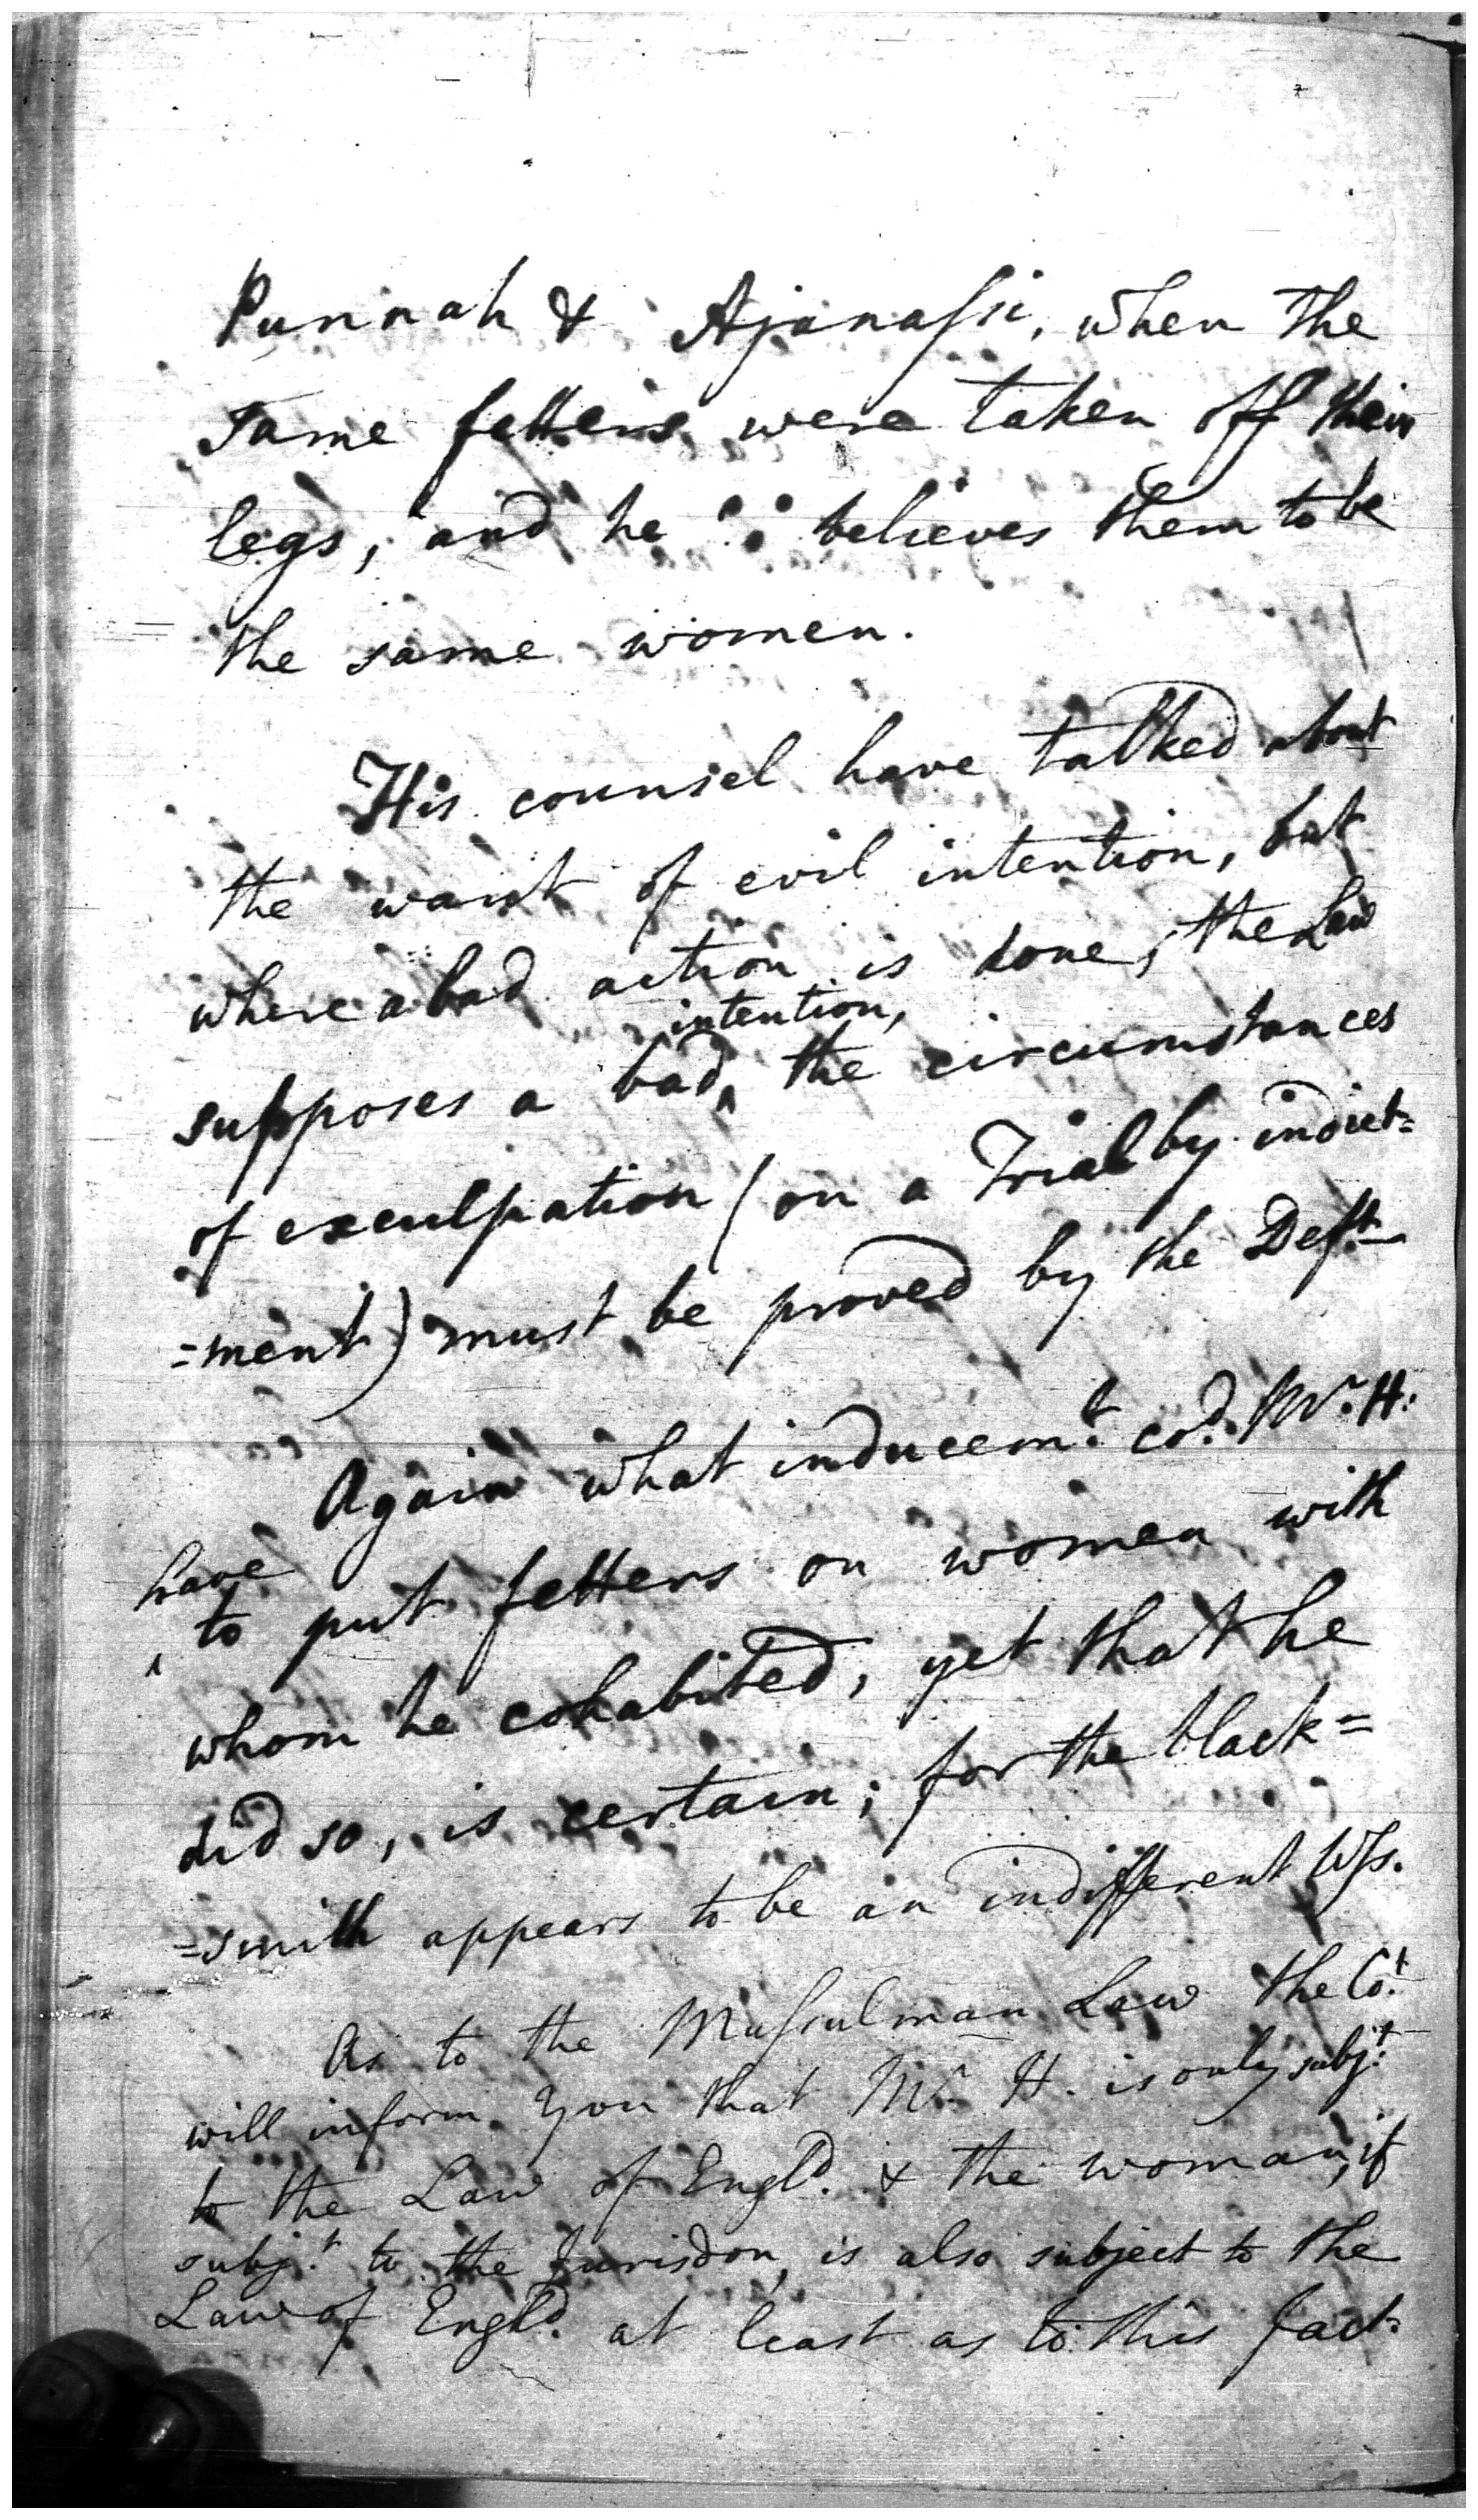 Punnah & Ajanassi, when the
same fetters were taken off their
legs, and he believes them to be
the same women.
His counsel have talked about
the want of evil intention, but
where a bad action is done, the Law
intention,
supposes a bad ‸ the circumstances
of exculpation (on a Trial by indict=
=ment) must be proved by the Deft
Again what inducemt. cod. Mr. H.
have
‸ to put fetters on women with
whom he cohabited, yet that he
did so, is certain; for the black=
=smith appears to be an indifferent Wss.
As to the Mussulman Law the Cot.
will inform you that Mr. H. is only subjt.
to the Law of Engld. & the woman, if
subjt. to the Jurisdon, is also subject to the
Law of Engld. at least as to this fact.